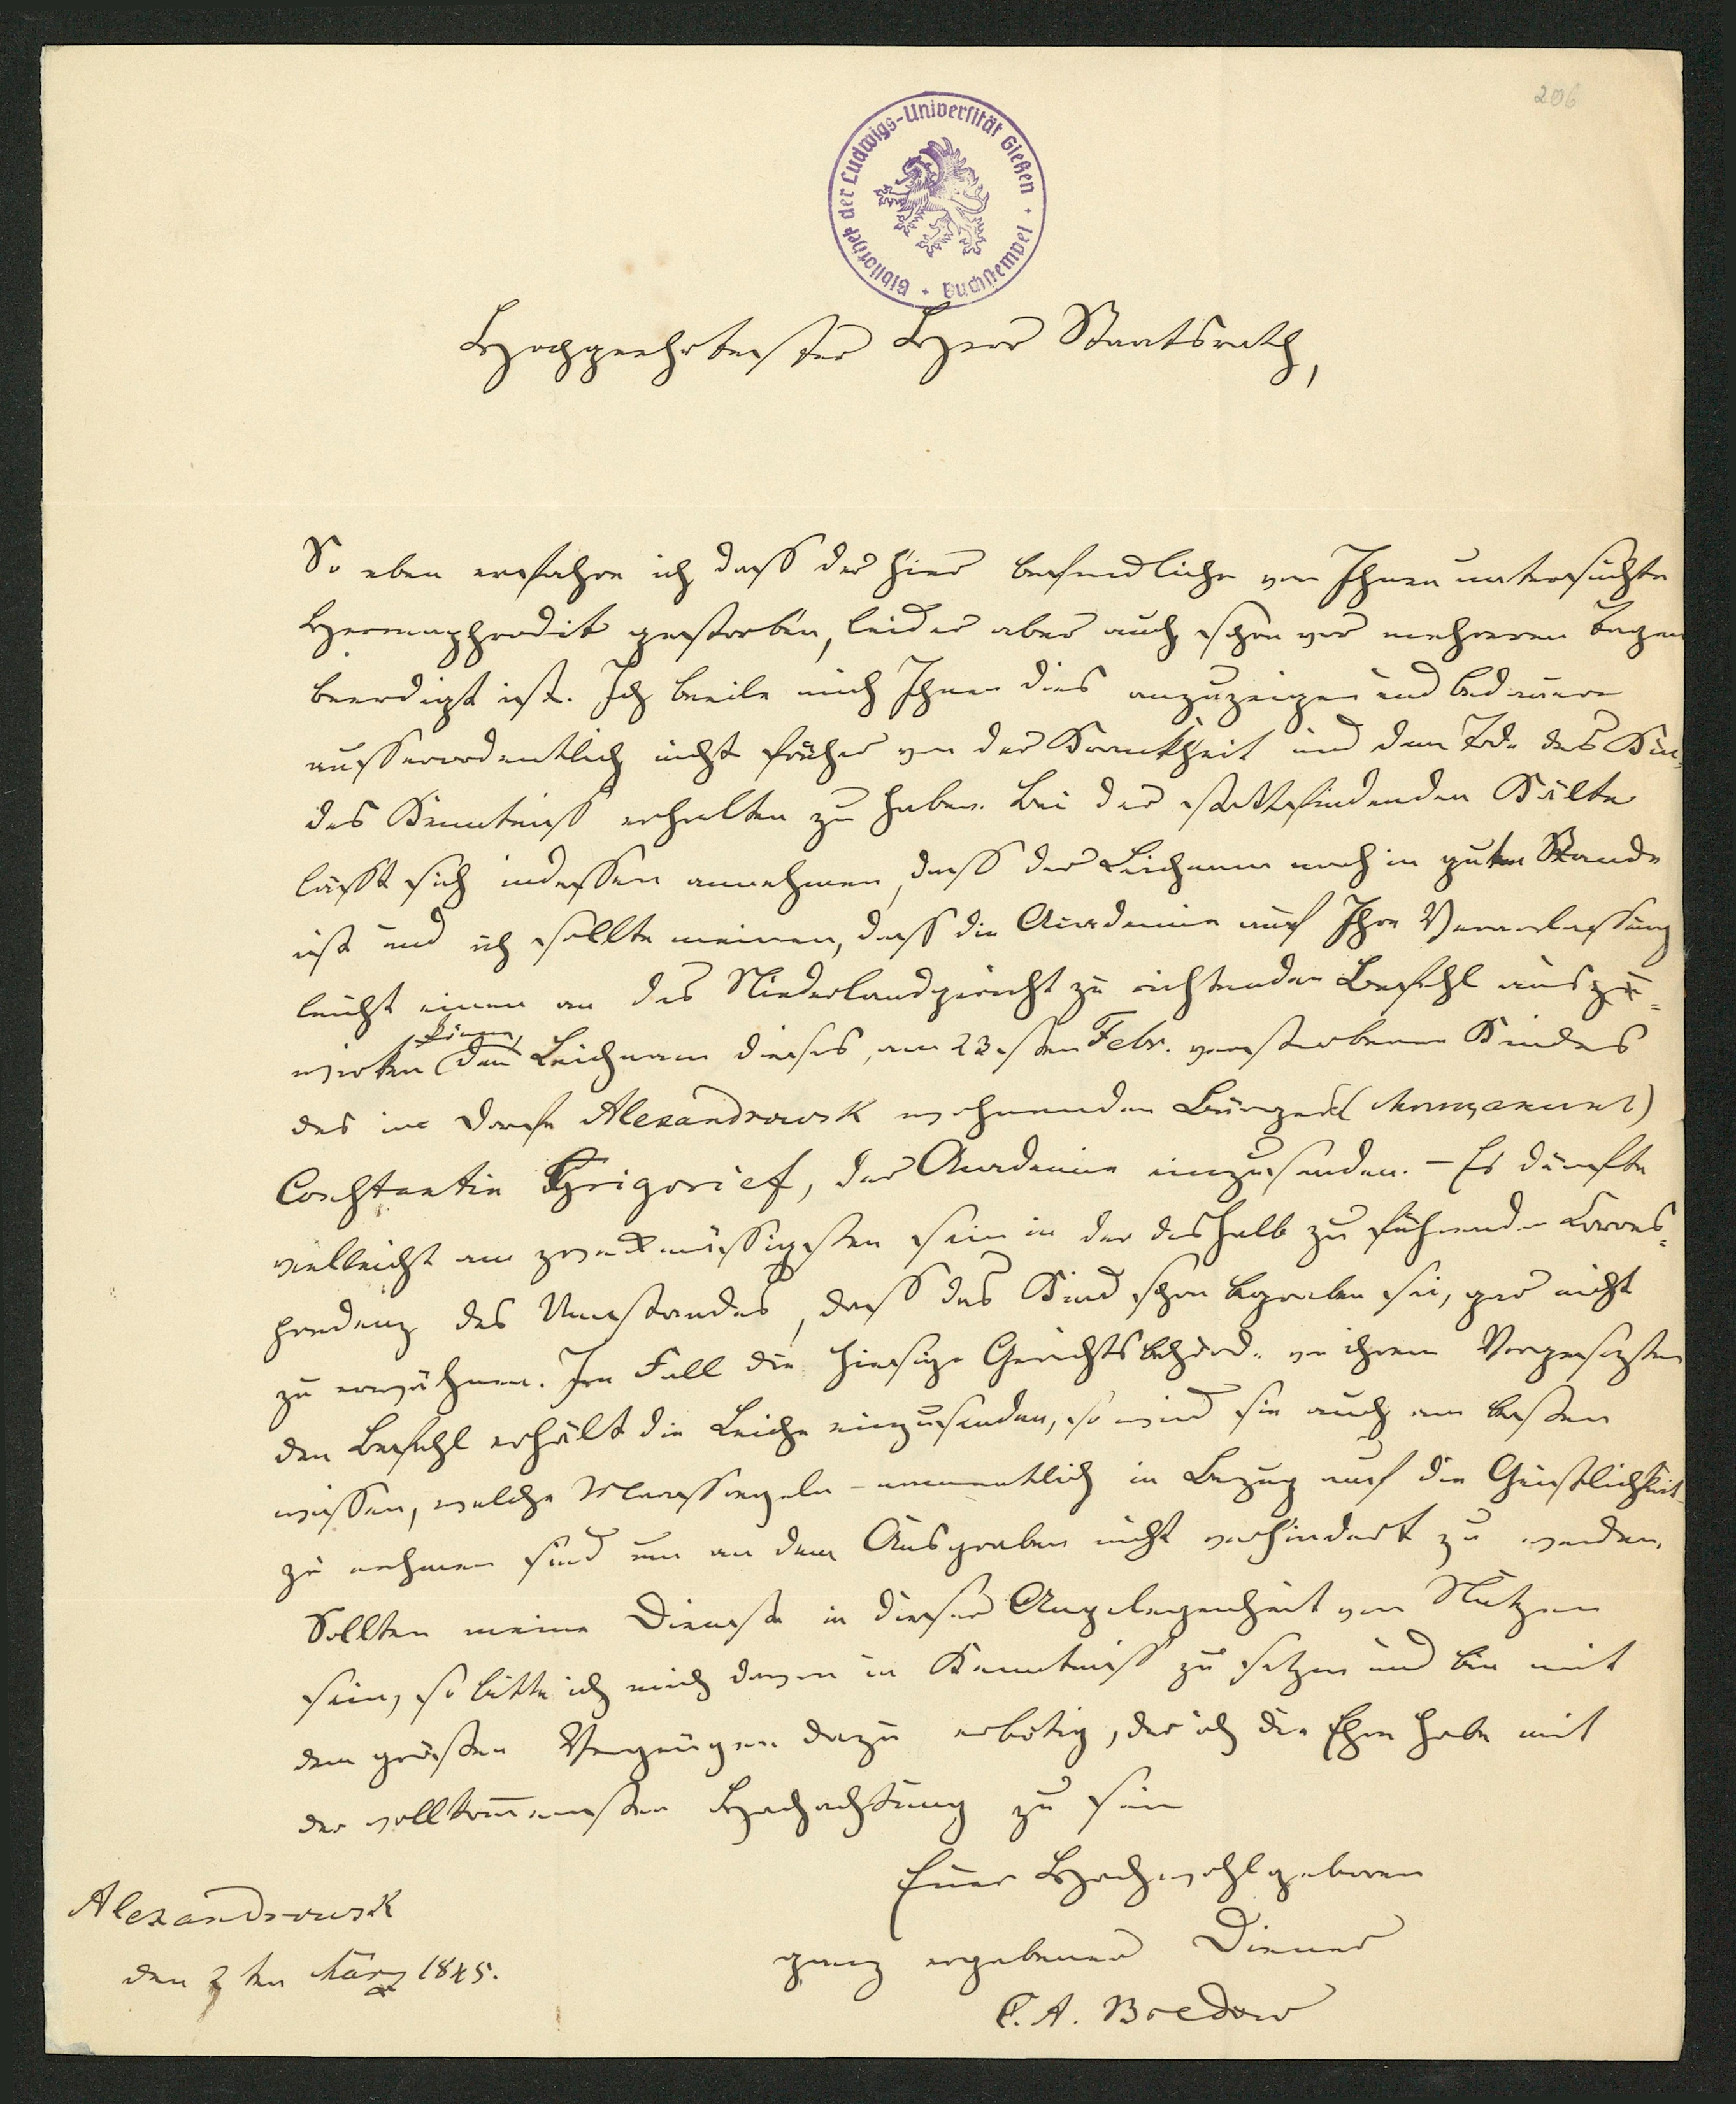 206
Bibliothek der Ludwigs-Universität Gießen · Buchstempel ·
Hochgeehrtester Herr Staatsrath,
So eben erfahre ich dass der hier befindliche von Ihnen untersuchte
Hermaphrodit gestorben, leider aber auch schon vor mehreren Tagen
beerdigt ist. Ich beeile mich Ihnen dies anzuzeigen und bedauere
ausserordentlich nicht früher von der Krankheit und dem Tode des Kin-
des Kenntniss erhalten zu haben. Bei der stattfindenden Kälte
lässt sich indessen annehmen, dass der Leichnam noch in gutem Stande
ist und ich sollte meinen, dass die Academie auf Ihre Veranlassung
leicht einen an das Niederlandgericht zu richtenden Befehl auszu=
wirken können, den Leichnam dieses, am 23sten Febr. verstorbenen Kindes
des im Dorfe Alexandrowsk wohnenden Bürgers
Constantin Grigorief, der Academie einzusenden. – Es dürfte
vielleicht am zweckmässigsten sein in der deshalb zu führenden Corres=
pondenz des Umstandes, dass das Kind schon begraben sei, gar nicht
zu erwähnen. Im Fall die hiesige Gerichtsbehörde von ihrem Vorgesetzten
den Befehl erhält die Leiche einzusenden, so wird sie auch am besten
wissen, welche Maassregeln – namentlich in Bezug auf die Geistlichkeit –
zu nehmen sind um an dem Ausgraben nicht verhindert zu werden.
Sollten meine Dienste in dieser Angelegenheit von Nutzen
sein, so bitte ich mich davon in Kenntniss zu setzen und bin mit
dem grössten Vergnügen dazu erbötig, der ich die Ehre habe mit
der vollkom̄ensten Hochachtung zu sein
Euer Hochwohlgeboren
ganz ergebener Diener
C. A. Bredow
Alexandrowsk
den 2ten März 1845.